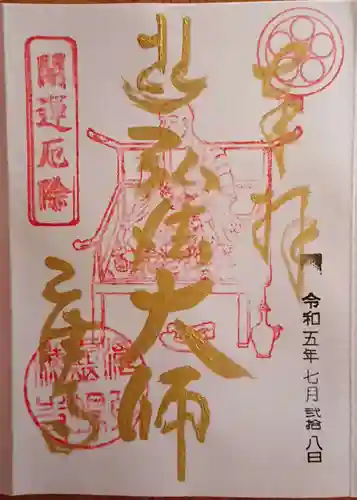 奉拝
令和五年七月弐拾八日
弘法大師
開運厄除